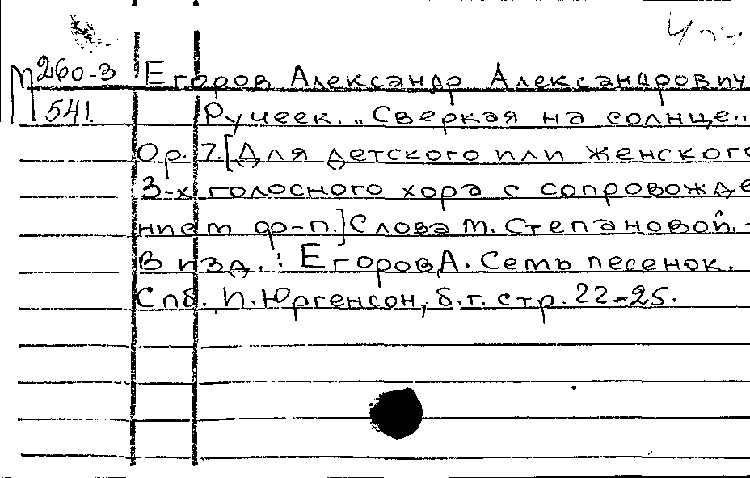 М 260-3 Егоров Александр Александрович
541 Ручеек. „Сверкая на солнце..
Ор. 7. [Для детского или женского
3-х голосного хора с сопровожде
нием ф-п.] Слова М. Степановой. -
В изд.: Егоров, А. Семь песенок.
Спб. П. Юргенсон, б.г. стр. 22-25.